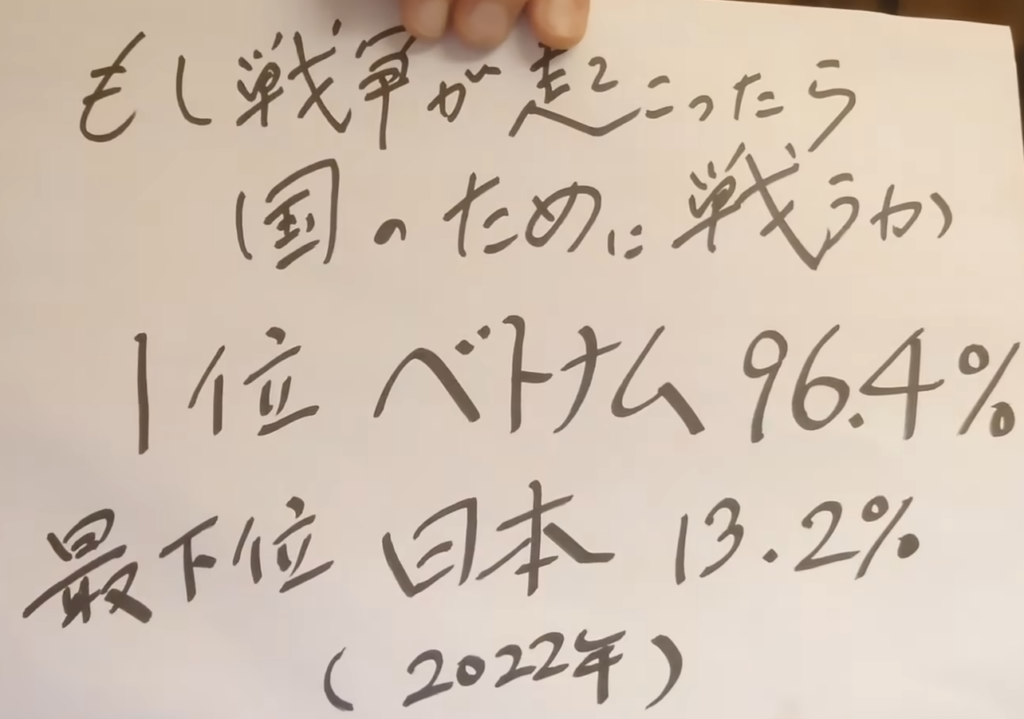 もし戦争が起こったら
国のために戦うか
1位 ベトナム 96.4%
最下位 日本 13.2%
(2022年)